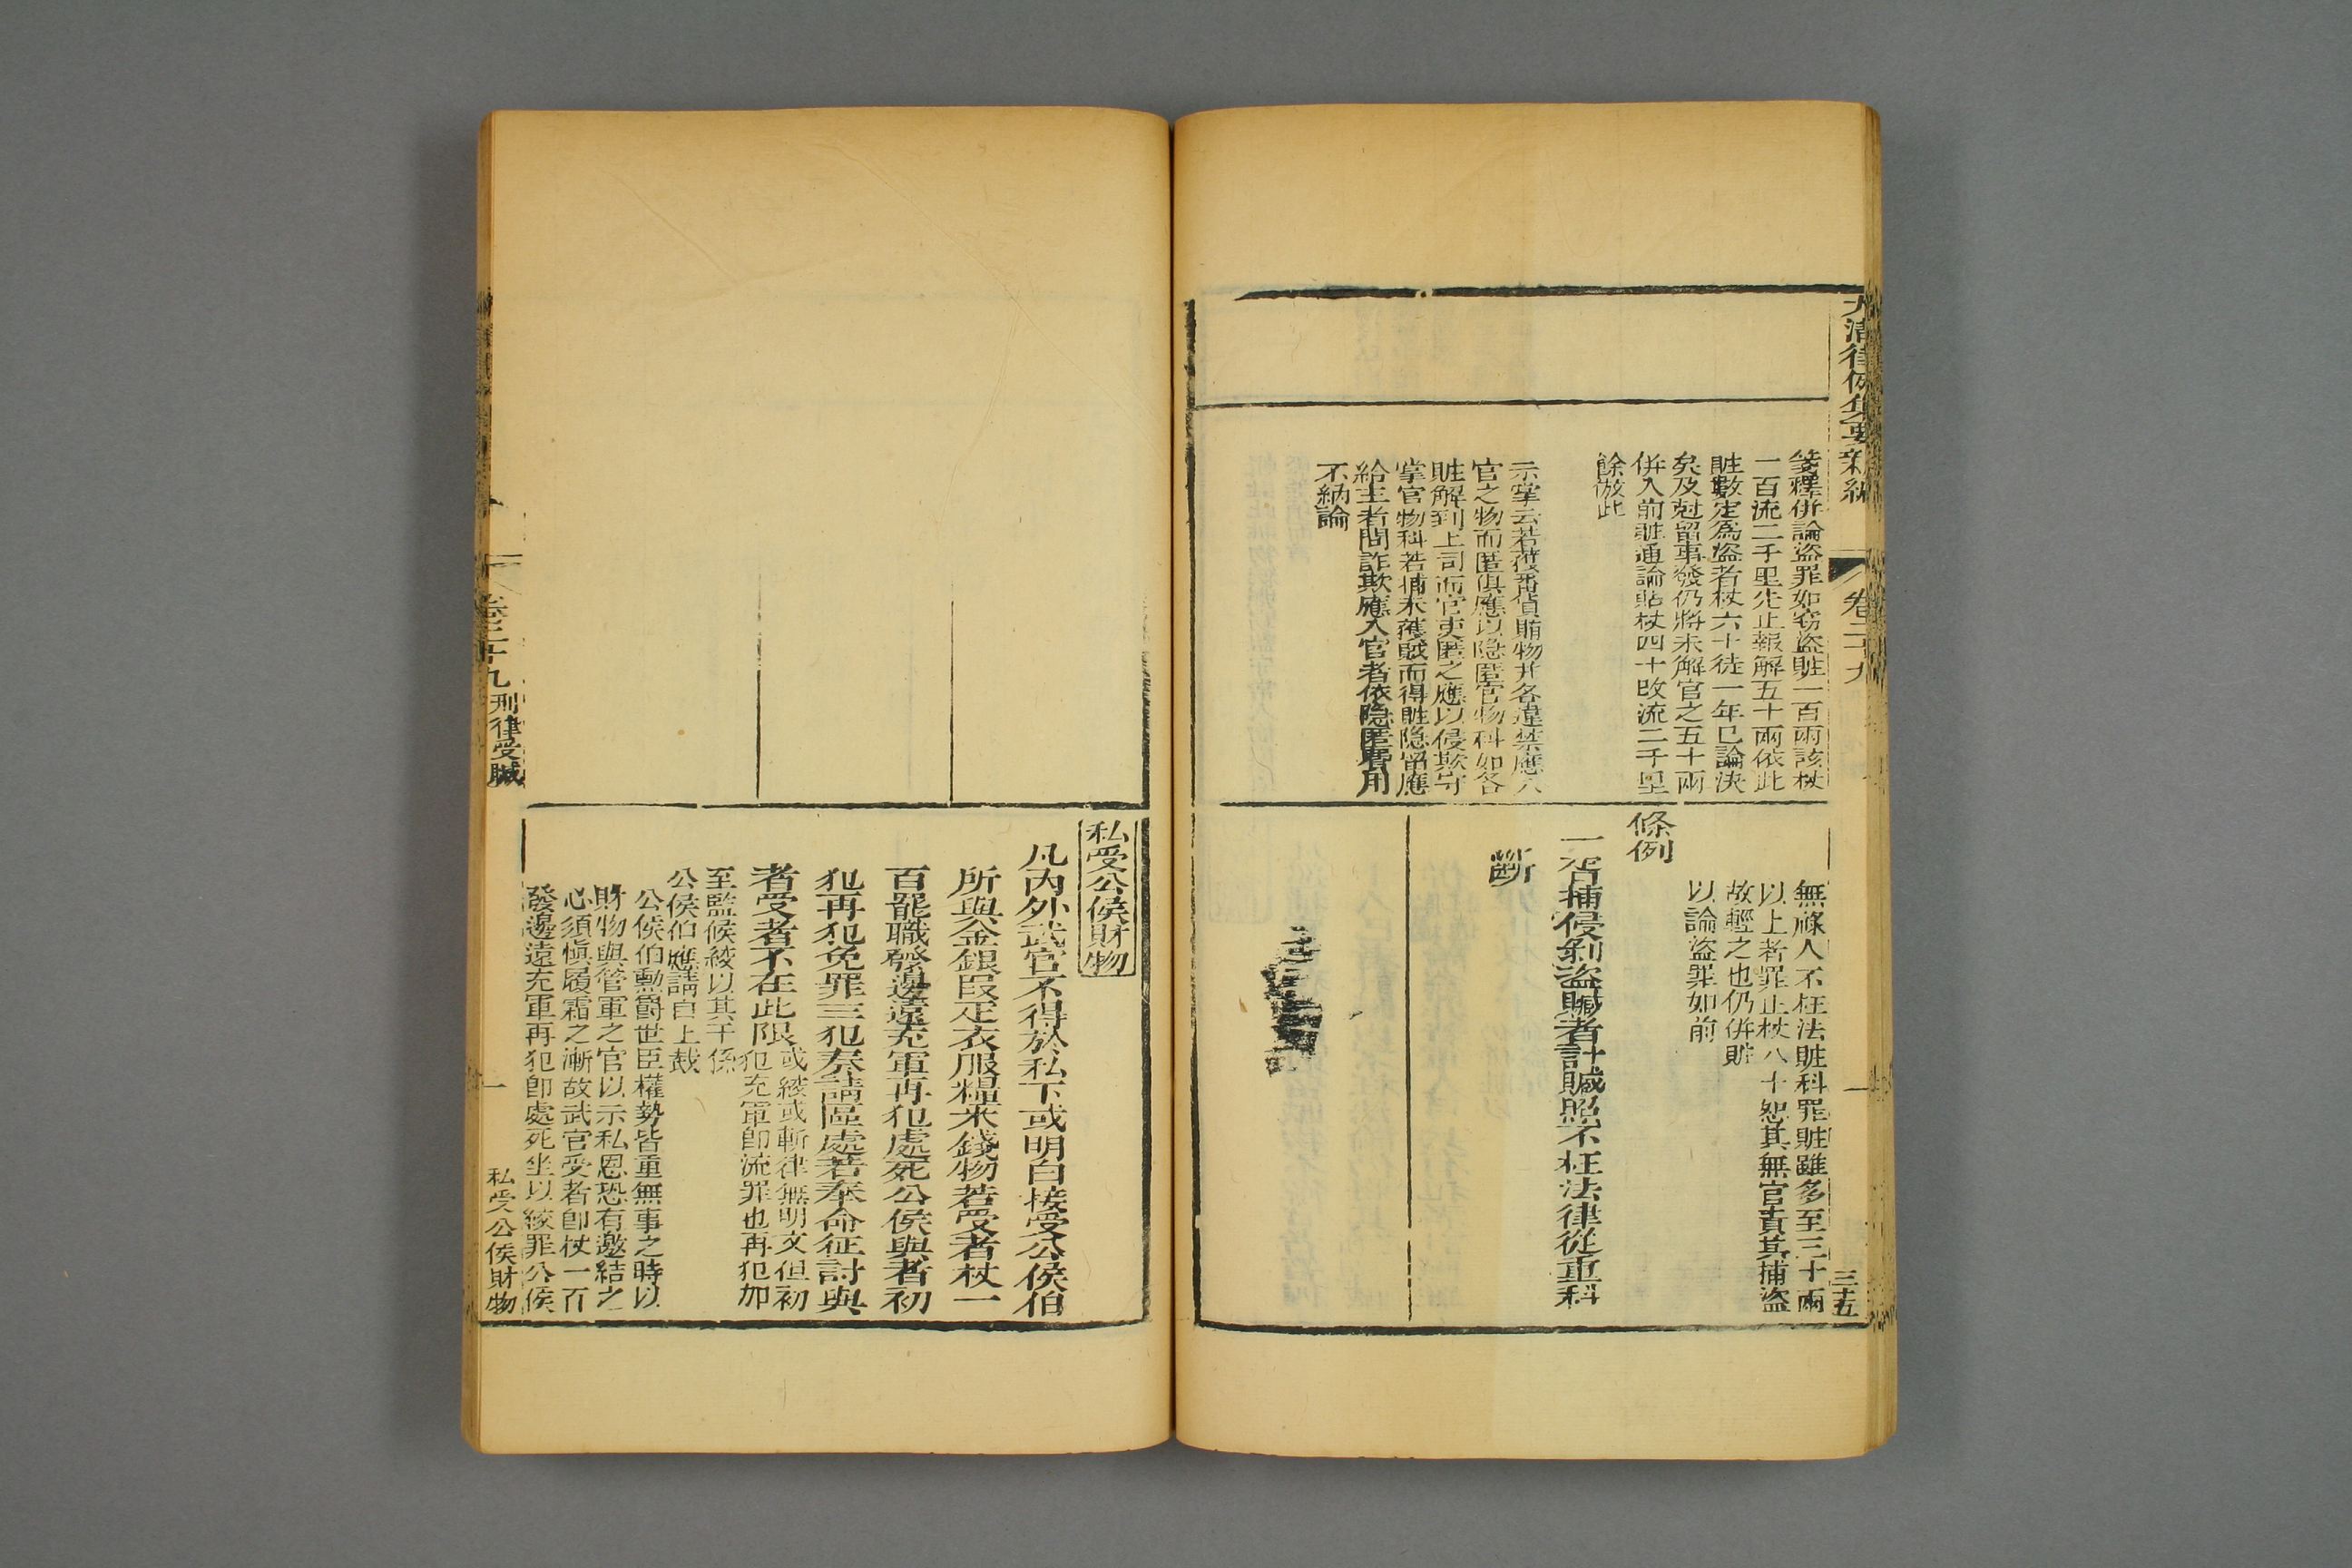 大清律例集要新編
卷二十九
三十五
箋釋併論盜罪如窃盜賍一百兩該杖
一百流二千里先止報解五十兩依此
賍數定為盜者杖六十徒一年已論決
矣及尅留事發仍將未解官之五十兩
併入前賍通論貼杖四十改流二千里
餘倣此
示掌云若獲番貨賄物并各違禁應入
官之物而匿俱應以隐匿官物科如各
賍解到上司而官吏匿之應以侵欺守
掌官物科若捕未獲賊而得賍隐留應
給主者問詐欺應入官者依隐匿費用
不納論
無祿人不枉法賍科罪賍雖多至三十兩
以上者罪止杖八十恕其無官責其捕盜
故輕之也仍併賍
以論盜罪如前
條例
一胥捕侵剝盜贓者計贓照不枉法律從重科
斷
私受公侯財物
凡内外武官不得於私下或明白接受公侯伯
所與金銀段疋衣服糧米錢物若受者杖一
百罷職發邊遠充軍再犯處死公侯與者初
犯再犯免罪三犯奏請區處若奉命征討與
者受者不在此限
或綾或斬律無明文但初
犯充軍卽流罪也再犯加
至監候綾以其干係
公侯伯應請自上裁
公侯伯勳爵世臣權勢皆重無事之時以
財物與管軍之官以示私恩恐有邀結之
心須愼履霜之漸故武官受者卽杖一百
發邊遠充軍再犯卽處死坐以絞罪公侯
卷二十九
刑律受贓
私受公侯財物